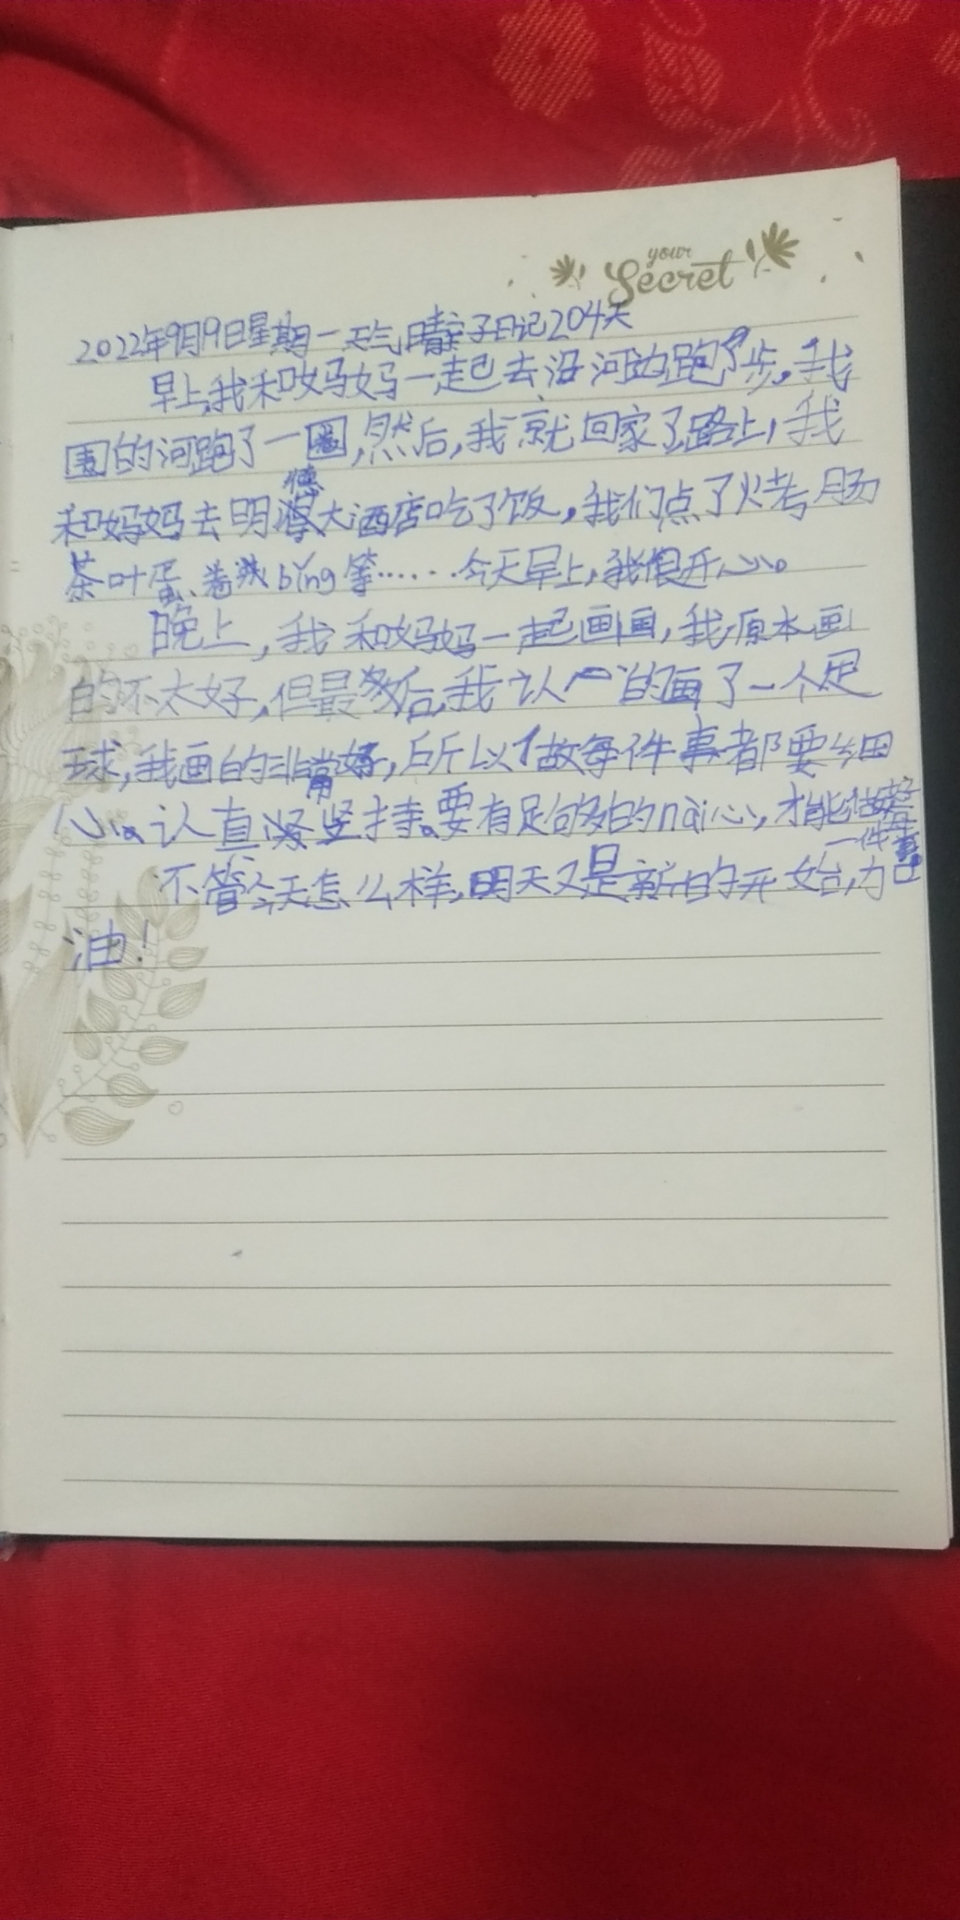 your
Secret
2022年9月9日星期一天气晴 子日记204天
早上,我和妈妈一起去沿河边跑步,我
围的河跑了一圈,然后,我就回家了路上,我
和妈妈去明德大酒店吃了饭,我们点了火考肠
茶叶蛋、bǐng等……今天早上,我很开心。
晚上,我和妈妈一起画画,我原本画
的不太好,但最后,我认的画了一个足
球,我画的非常好,所以做每件事都要细
心。认真坚持。要有足够的nài心,才能做好
一件事
不管今天怎么样,明天又是新的开始,加
油!